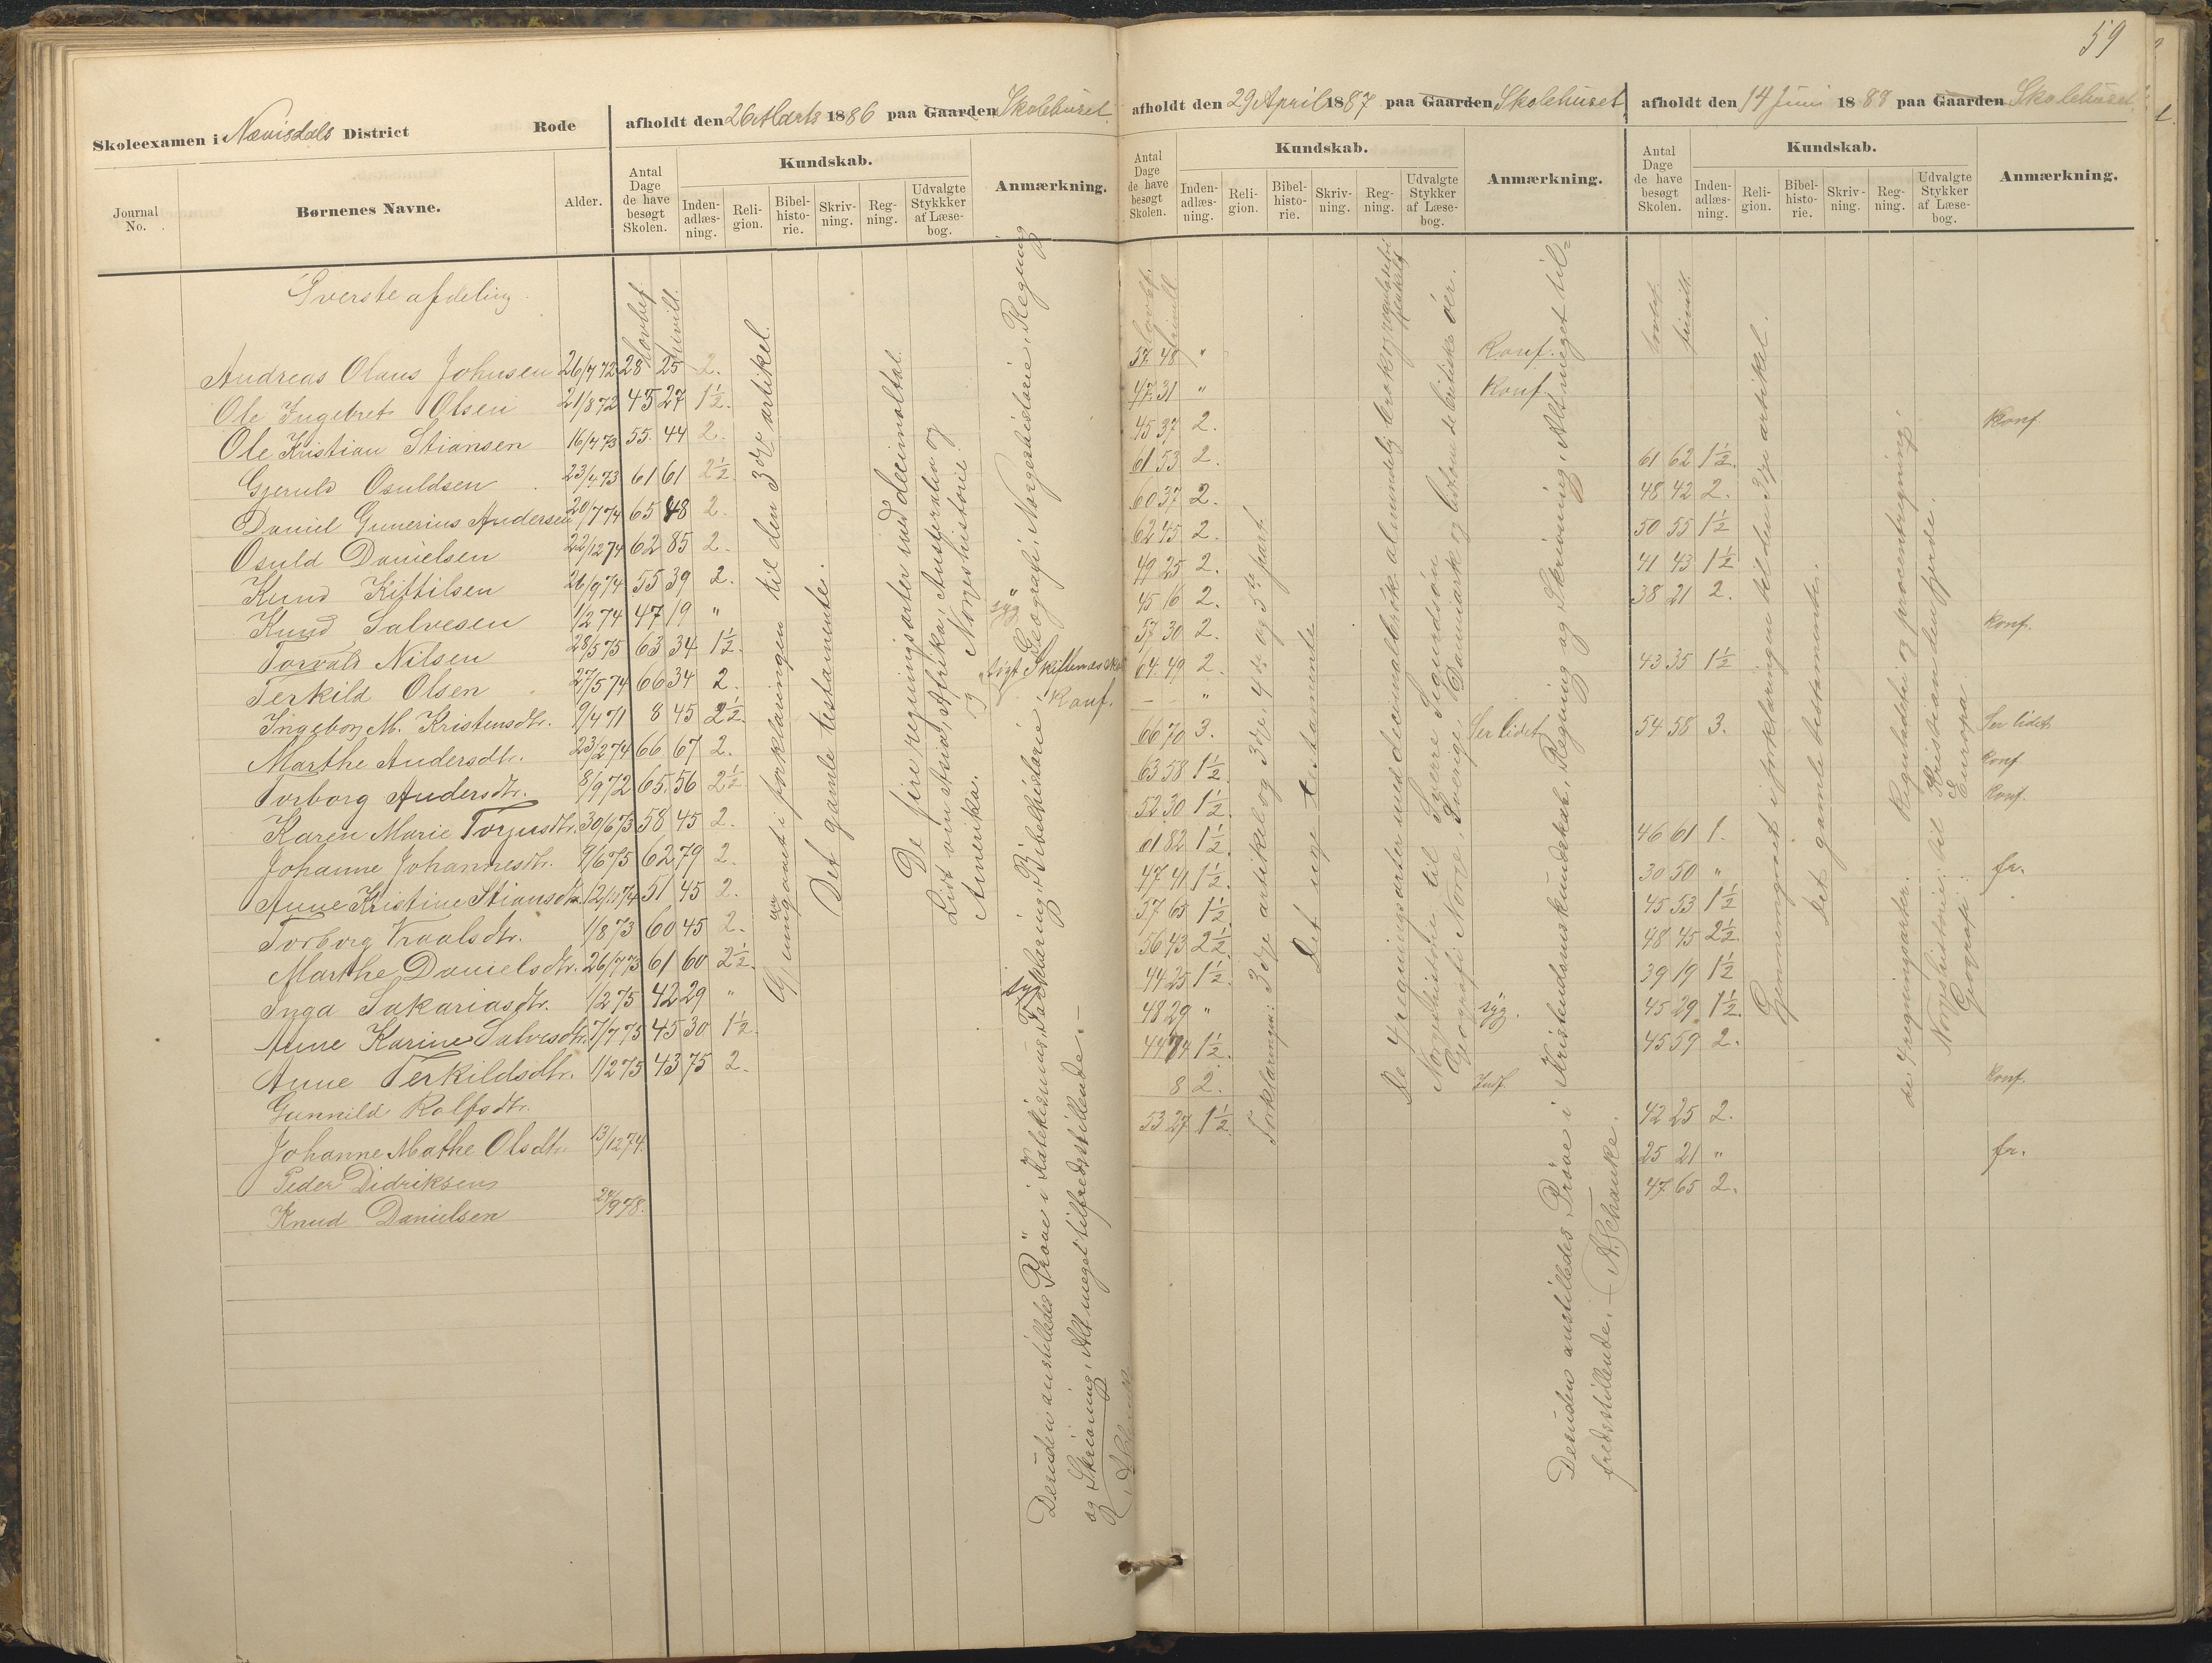 59
Skoleexamen i Nævisdals District Rode
afholdt den 26 Marts 1886 paa Gaarden Skolehuset
Journal No.
Børnenes Navne.
Alder.
Antal Dage de have besøgt Skolen.
Kundskab.
Inden-adlæs-ning.
Reli-gion.
Bibel-histo-rie.
Skriv-ning.
Reg-ning.
Udvalgte Stykkker af Læse-bog.
Anmærkning.
Øverste afdeling.
lovbef. frivill.
Andreas Olaus Johnsen 26/7 72 28 25 2.
Ole Ingebret Olsen 21/8 72 45 27 1½.
Ole Kristian Stiansen 16/4 73 55. 44 2.
Gjeruld Osuldsen 23/4 73 61 61 2½.
Daniel Gunerius Andersen 20/7 74 65 48 2.
Osuld Danielsen 22/12 74 62 85 2.
Knud Kittilsen 26/9 74 55 39 2.
Knud Salvesen 1/2 74 47 19 " syg
Torvald Nilsen 28/5 75 63 34 1½.
Terkild Olsen 27/5 74 66 34 2
Ingeborg M. Kristensdtr. 9/4 71 8 45 2½. Konf.
Marthe Andersdtr. 23/2 74 66 67 2.
Torborg Andersdtr. 8/9 72 65. 56 2½
Karen Marie Torjusdtr. 30/6 73 58 45 2.
Johanne Johannesdtr. 9/6 75 62 79 2.
Anne Kristine Stiansdtr. 12/11 74 51 45 2.
Torborg Vraalsdtr. 1/8 73 60 45 2.
Marthe Danielsdtr. 26/7 73 61 60 2½.
Inga Sakariasdtr. 1/2 75 42 29 " syg
Anne Karine Salvesdtr. 7/7 75 45 30 1½.
Anne Terkildsdtr. 1/2 75 43 75 2.
Gunnild Rolfsdtr.
Johanne Mathe Olsdtr. 13/12 74.
Peder Didriksen
Knud Danielsen 24/9 78.
Gjennemgaaet i forklaringen til den 3die artikel.
Det gamle testamente.
De fire regningsarter med decimaltal.
Lidt om Asia, Afrika, Australia og
Amerika. Norgeshistorie.
Desuden anstilledes Prøve i Katekismus, Forklaring, Bibelhistorie, Geografi, Norgeshistorie, Regning
og Skrivning, Alt meget tilfredsstillende.
afholdt den 29 April 1887 paa Gaarden Skolehuset
Antal Dage de have besøgt Skolen.
Kundskab.
Inden-adlæs-ning.
Reli-gion.
Bibel-histo-rie.
Skriv-ning.
Reg-ning.
Udvalgte Stykker af Læse-bog.
Anmærkning.
lovbef. frivill.
57 48 " Konf.
47 31 " Konf
45 37 2.
61 53 2.
60 37 2.
62 45 2.
49 25 2.
45 16 2.
57 30 2.
64 49 2.
– – "
66 70 3. Ser lidet
63 58 1½.
52 30 1½.
61 82 1½.
47 41 1½.
57 65 1½.
56 43 2½.
44 25 1½.
48 29 " syg.
44 74 1½.
8 2. Indf.
53 27 1½
Forklaringen: 3die artikel og 3die, 4de og 5te part.
Det nye testamente
De 4 regningsarter med decimalbrøk almindelig brøk og reguladetri
Norgeshistorie til Sverre Sigurdsøn
Geografi Norge, Sverige, Danmark og lidt om de britiske øer.
Desuden anstilledes Prøve i Kristendomskundskab, Regning og Skrivning, Alt meget til=
fredsstillende. A. Schanke.
afholdt den 14 Juni 1888 paa Gaarden Skolehuset
Antal Dage de have besøgt Skolen.
Kundskab.
Inden-adlæs-ning.
Reli-gion.
Bibel-histo-rie.
Skriv-ning.
Reg-ning.
Udvalgte Stykker af Læse-bog.
Anmærkning.
lovbef. frivill.
Konf.
61 62 1½.
48 42 2.
50 55 1½
41 43 1½
38 21 2.
Konf.
43 35 1½
54 58 3. Ser lidet
Konf
Konf.
46 61 1.
30 50 " fr.
45 53 1½
48 45 2½.
39 19 1½
45 29 1½.
45 59 2.
Konf.
42 25 2.
25 21 " fr.
47 65 2.
Gjennemgaaet i forklaringen til den 3die artikel.
Det gamle testamente.
de 4 regningsarter. Reguladetri og procentregning.
Norgeshistorie: til Kristian den fjerde.
Geografi: Europa.